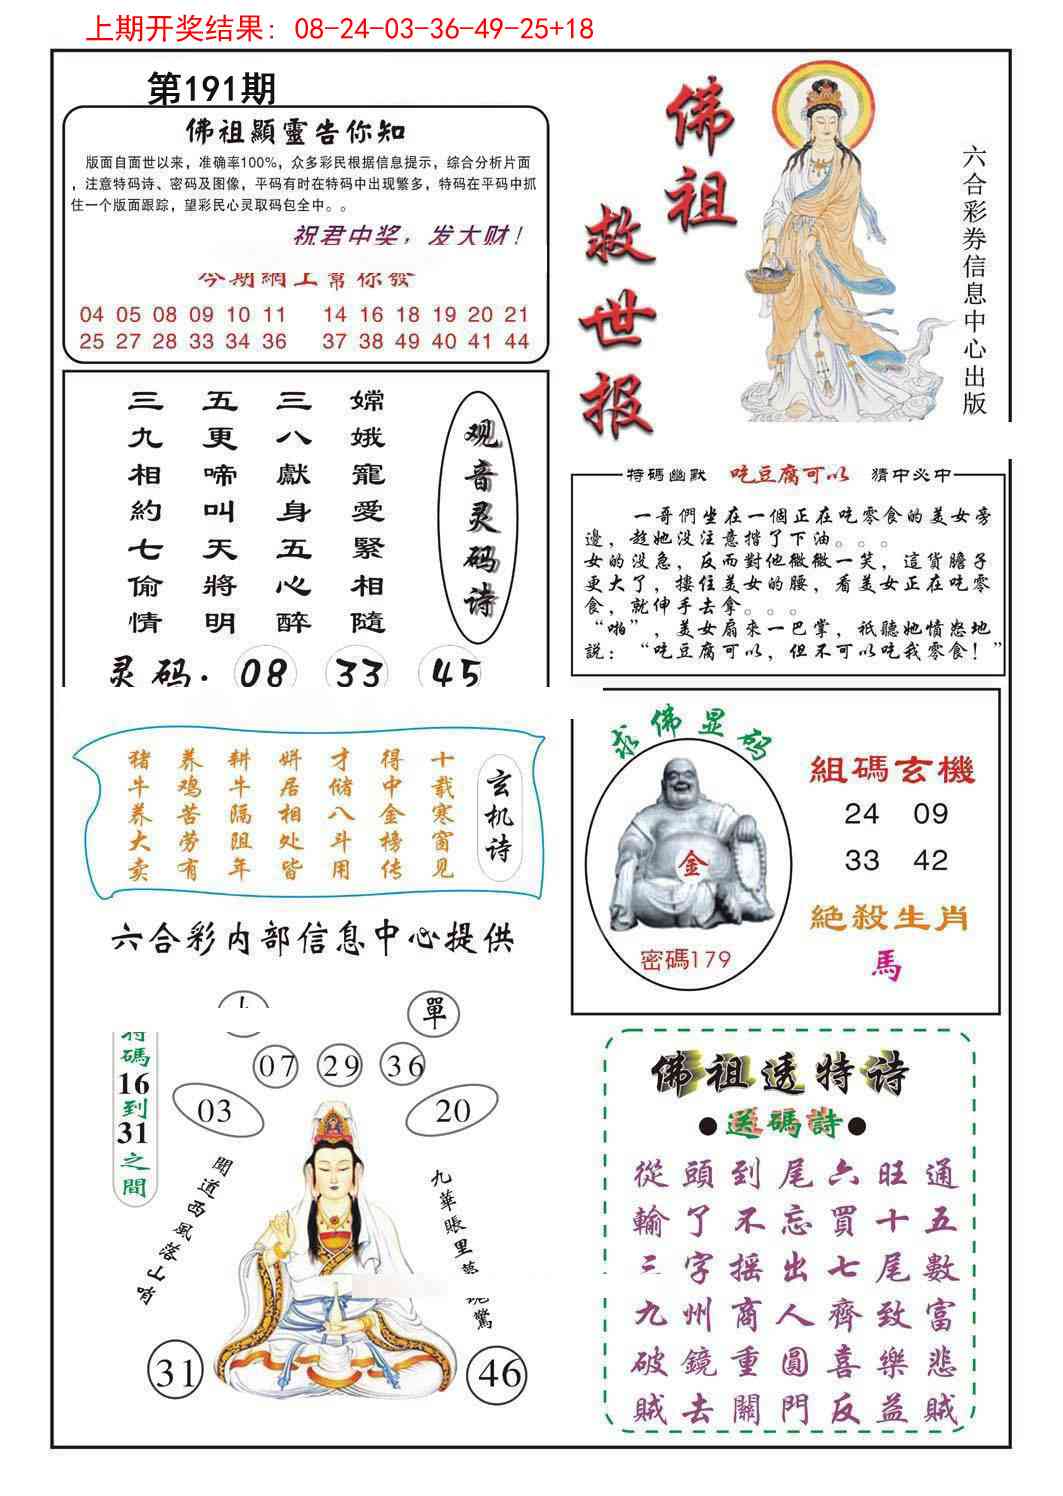 上期开奖结果: 08-24-03-36-49-25+18
第191期
佛祖顯靈告你知
版面自面世以来，准确率100%，众多彩民根据信息提示，综合分析片面
，注意特码诗、密码及图像，平码有时在特码中出现繁多，特码在平码中抓
住一个版面跟踪，望彩民心灵取码包全中。。
祝君中奖，发大财！
今期網上幫你發
04 05 08 09 10 11 14 16 18 19 20 21
25 27 28 33 34 36 37 38 49 40 41 44
佛祖
救世报
六合彩券信息中心出版
观音灵码诗
嫦娥寵愛緊相隨
三八獻身五心醉
五更啼叫天將明
三九相約七偷情
灵码. 08 33 45
特碼幽默 吃豆腐可以 猜中必中
一哥們坐在一個正在吃零食的美女旁
邊，趁她没注意揩了下油。。。
女的没急，反而對他微微一笑，這貨膽子
更大了，摟住美女的腰，看美女正在吃零
食，就伸手去拿。。。
“啪”，美女扇來一巴掌，祇聽她憤怒地
説：“吃豆腐可以，但不可以吃我零食！”
玄机诗
十载寒窗见
得中金榜传
才储八斗用
姘居相处皆
耕牛隔阻年
养鸡苦劳有
猪牛养大卖
六合彩内部信息中心提供
求佛显码
金
密碼179
組碼玄機
24 09
33 42
絶殺生肖
馬
單
特碼16到31之間
07 29 36
03 20
聞道西風落山哨
九華賬里
驚
31 46
佛祖透特诗
●送碼詩●
從頭到尾六旺通
輸了不忘買十五
三字摇出七尾數
九州商人齊致富
破鏡重圓喜樂悲
賊去關門反益賊